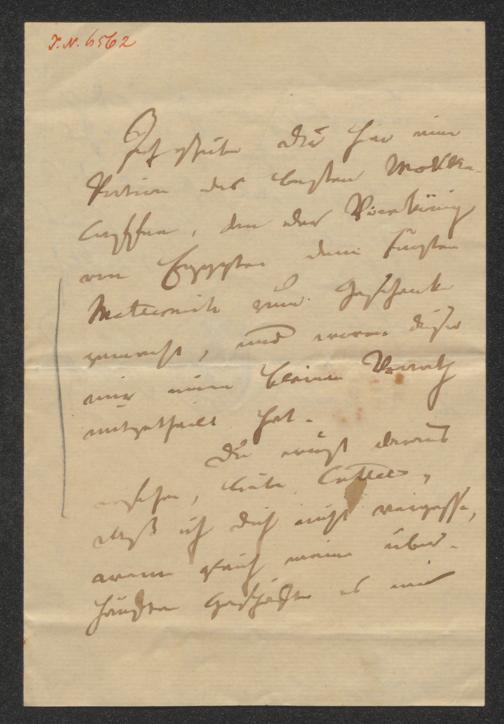 J.N. 6562
Ich schicke dir hier eine
Portion des besten Mokka-
Caffee, den der Vicekönig
von Egypten dem Fürsten
Metternich zum Geschenk
gemacht, und wovon dieser
mir einen kleinen Vorrath
mitgetheilt hat.
Du magst daraus
ersehen, liebe
daß ich dich nicht vergesse,
wenn gleich meine über-
häuften Geschäfte es mir